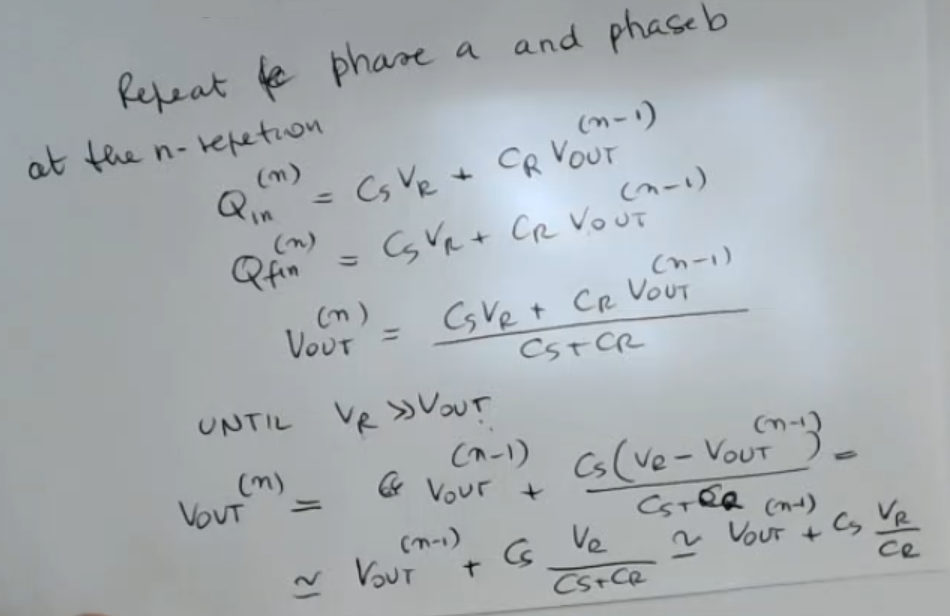 Repeat phase a and phase b
at the n-repetion
Qin^(n) = CS VR + CR VOUT^(n-1)
Qfin^(n) = CS VR + CR VOUT^(n-1)
VOUT^(n) = (CS VR + CR VOUT^(n-1)) / (CS + CR)
UNTIL VR >> VOUT
VOUT^(n) = VOUT^(n-1) + CS(VR - VOUT^(n-1)) / (CS + CR) =
≃ VOUT^(n-1) + CS VR / (CS + CR) ≃ VOUT^(n-1) + CS VR / CR